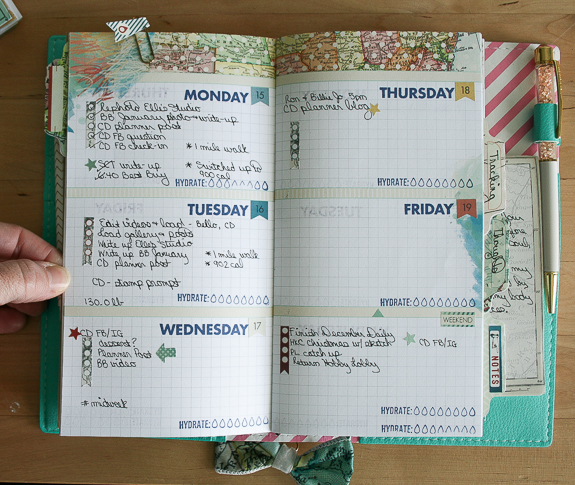 MONDAY 15
Rephoto Ellis Studio
BB January photo + write-up
CD planner post
CD FB question
CD FB check-in * 1 mile walk
SCT write-up * Switched up to
6:40 Best Buy 900 cal
HYDRATE:
TUESDAY 16
Edit videos + load - Bello, CD
Load gallery + posts
Write up Ellis Studio
Write up BB January * 1 mile walk
CD planner post * 902 cal
CD - stamp prompt
130.0 lb
HYDRATE:
WEDNESDAY 17
CD FB/IG
accent?
Planner Post
BB video
# midweek
HYDRATE:
THURSDAY 18
Ron & Billie Jo 5pm
CD planner blog
HYDRATE:
FRIDAY 19
HYDRATE:
WEEKEND
Finish December Daily
HKC Christmas w/ sketch CD FB/IG
PL catch up
Return Hobby Lobby
HYDRATE:
HYDRATE:
Tracking
Thoughts
NOTES
your
more
soul,
my
my body